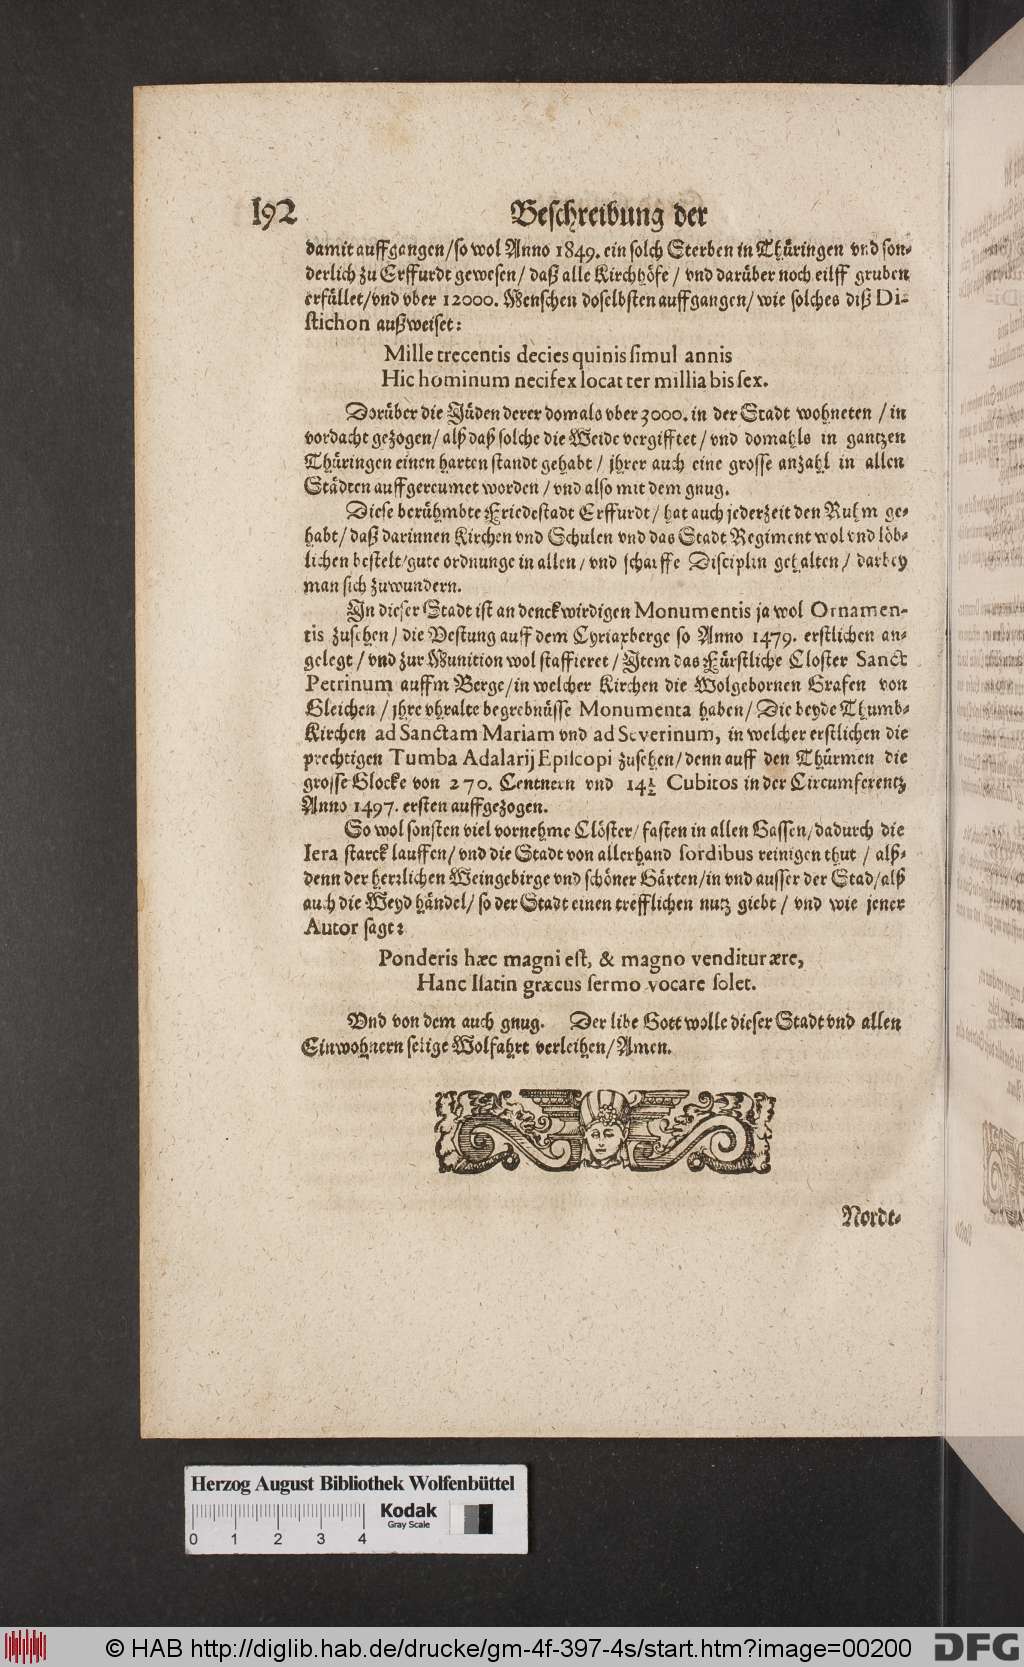 192
Beschreibung der
damit auffgangen/so wol Anno 1849. ein solch Sterben in Thüringen vnd son-
derlich zu Erffurdt gewesen/ daß alle Kirchhöfe / vnd darüber noch eilff gruben
erfüllet/vnd vber 12000. Menschen doselbsten auffgangen/ wie solches diß Di-
stichon außweiset:
Mille trecentis decies quinis simul annis
Hic hominum necisex locat ter millia bis sex.
Dorüber die Jüden derer domals vber 3000. in der Stadt wohneten / in
vordacht gezogen/ alß daß solche die Weide vergifftet / vnd domahls in gantzen
Thüringen einen harten standt gehabt / jhrer auch eine grosse anzahl in allen
Städten auffgereumet worden / vnd also mit dem gnug.
Diese berühmbte Friedestadt Erffurdt / hat auch jederzeit den Ruhm ge-
habt / daß darinnen Kirchen vnd Schulen vnd das Stadt Regiment wol vnd löb-
lichen bestelt/gute ordnunge in allen / vnd scharffe Disciplin gehalten / darbey
man sich zuwundern.
In dieser Stadt ist an denckwirdigen Monumentis ja wol Ornamen-
tis zusehen / die Vestung auff dem Cyriaxberge so Anno 1479. erstlichen an-
gelegt / vnd zur Munition wol staffieret / Item das Fürstliche Closter Sanct
Petrinum auffm Berge/in welcher Kirchen die Wolgebornen Grafen von
Gleichen / jhre vhralte begrebnüsse Monumenta haben/ Die beyde Thumb-
Kirchen ad Sanctam Mariam vnd ad Severinum, in welcher erstlichen die
prechtigen Tumba Adalarij Episcopi zusehen/ denn auff den Thürmen die
grosse Glocke von 270. Centnern vnd 14½ Cubitos in der Circumferentz
Anno 1497. ersten auffgezogen.
So wol sonsten viel vornehme Clöster/ fasten in allen Gassen/dadurch die
Iera starck lauffen/ vnd die Stadt von allerhand sordibus reinigen thut / alß-
denn der herrlichen Weingebirge vnd schöner Gärten/in vnd ausser der Stad/alß
auch die Weyd händel/ so der Stadt einen trefflichen nutz giebt / vnd wie jener
Autor sagt:
Ponderis hæc magni est, & magno venditur ære,
Hanc Isatin græcus sermo vocare solet.
Vnd von dem auch gnug. Der libe Gott wolle dieser Stadt vnd allen
Einwohnern selige Wolfahrt verleihen/ Amen.
Nordt-
Herzog August Bibliothek Wolfenbüttel
Kodak
Gray Scale
0 1 2 3 4
© HAB http://diglib.hab.de/drucke/gm-4f-397-4s/start.htm?image=00200
DFG